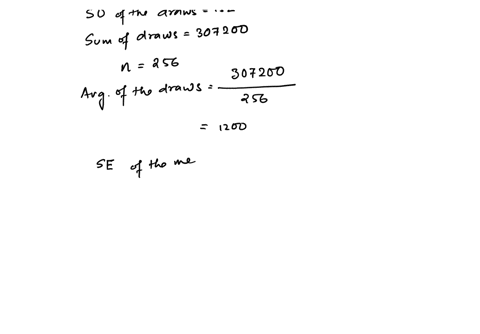 SD of the draws =
Sum of draws = 307200
n = 256
Avg. of the draws = 307200
256
= 1200
SE of the me